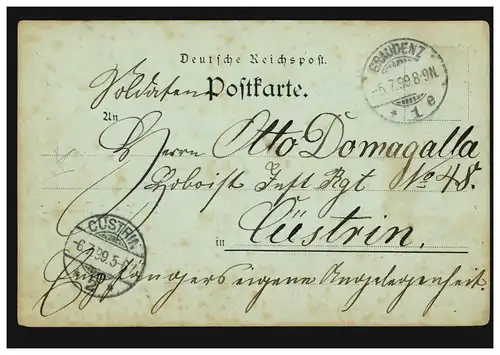 Deutsche Reichspost.
Soldaten Postkarte.
GRAUDENZ
-5.7.99.8-9N.
* 1 e
An
Herrn Otto Domagalla
Hoboist Inft Rgt No 48.
in Cüstrin.
CÜSTRIN
-6.7.99.5-
2 *
Empfängers eigene Angelegenheit.